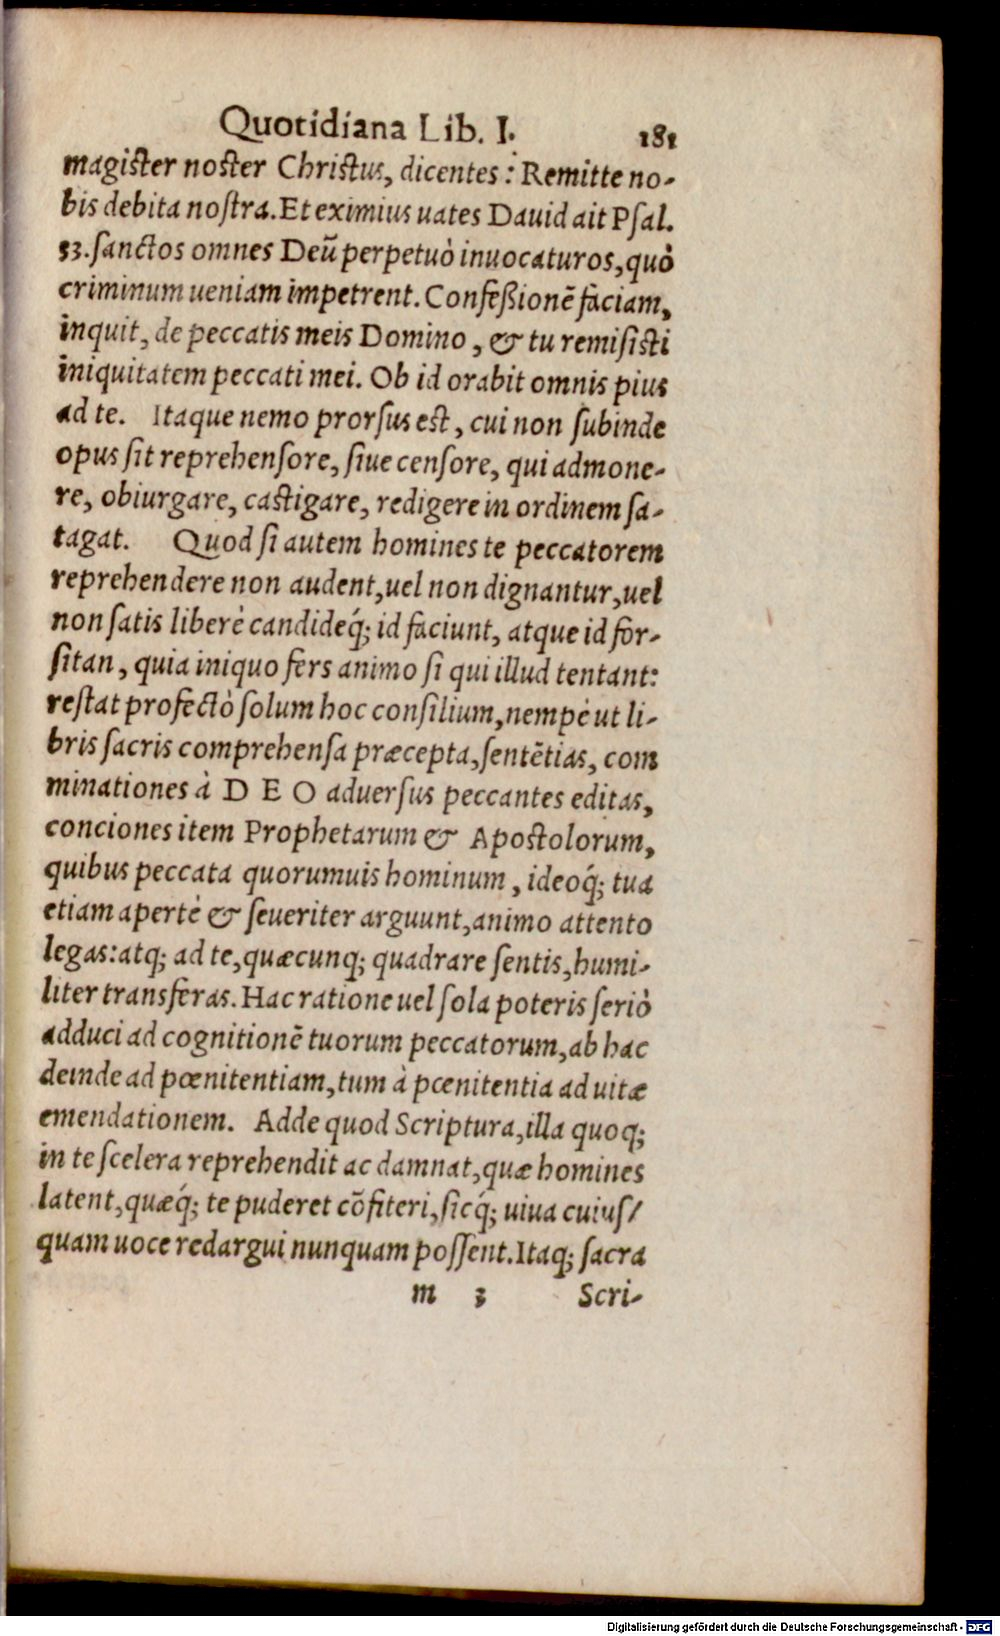 Quotidiana Lib. I. 181
magister noster Christus, dicentes: Remitte no-
bis debita nostra. Et eximius uates Dauid ait Psal.
53. sanctos omnes Deũ perpetuò inuocaturos, quò
criminum ueniam impetrent. Confeßionē faciam,
inquit, de peccatis meis Domino, & tu remisisti
iniquitatem peccati mei. Ob id orabit omnis pius
ad te. Itaque nemo prorsus est, cui non subinde
opus sit reprehensore, siue censore, qui admone-
re, obiurgare, castigare, redigere in ordinem sa-
tagat. Quod si autem homines te peccatorem
reprehendere non audent, uel non dignantur, uel
non satis liberè candideq́; id faciunt, atque id for-
sitan, quia iniquo fers animo si qui illud tentant:
restat profectò solum hoc consilium, nempe ut li-
bris sacris comprehensa præcepta, sentētias, com
minationes à DEO aduersus peccantes editas,
conciones item Prophetarum & Apostolorum,
quibus peccata quorumuis hominum, ideoq́; tua
etiam apertè & seueriter arguunt, animo attento
legas: atq; ad te, quæcunq; quadrare sentis, humi-
liter transferas. Hac ratione uel sola poteris seriò
adduci ad cognitionē tuorum peccatorum, ab hac
deinde ad pœnitentiam, tum à pœnitentia ad uitæ
emendationem. Adde quod Scriptura, illa quoq;
in te scelera reprehendit ac damnat, quæ homines
latent, quæq́; te puderet cōfiteri, sicq́; uiua cuius/
quam uoce redargui nunquam possent. Itaq; sacra
m 3 Scri-
Digitalisierung gefördert durch die Deutsche Forschungsgemeinschaft - DFG